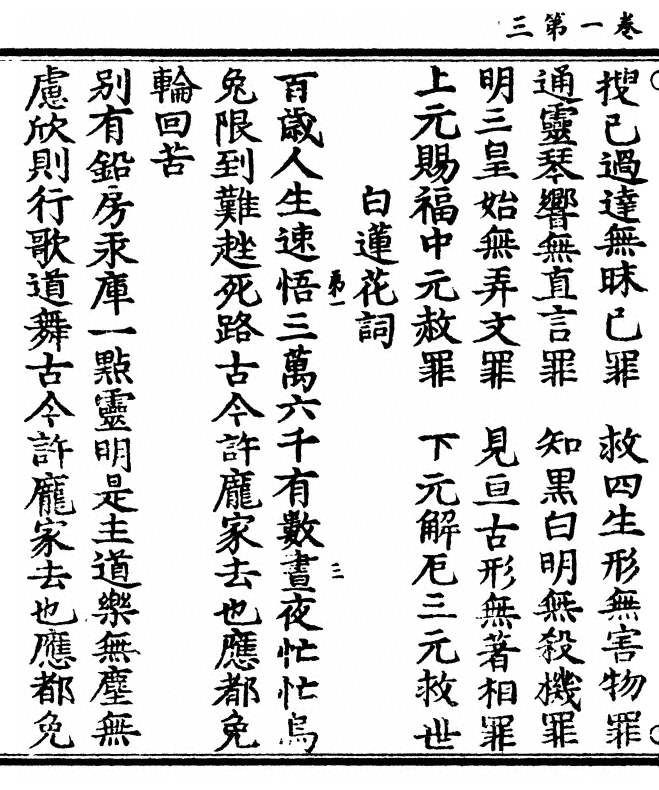 卷一第三
搜己過達無昧己罪　救四生形無害物罪
通靈琴響無直言罪　知黑白明無殺機罪
明三皇始無弄文罪　見亘古形無著相罪
上元賜福中元赦罪　下元解厄三元救世
白蓮花詞
百歲人生速悟三萬六千有數晝夜忙忙烏
第一
三
兔限到難趖死路古今許龐家去也應都免
輪回苦
別有鉛房汞庫一點靈明是主道樂無塵無
慮欣則行歌道舞古今許龐家去也應都免